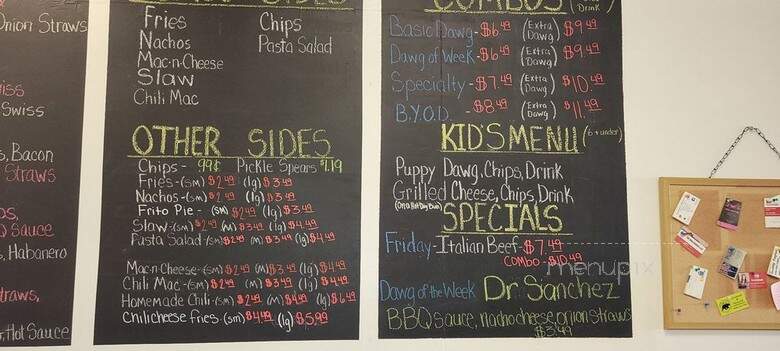 Onion Straws
iss
Swiss
, Bacon
Straws
os,
Q sauce
, Habanero
traws,
, Hot Sauce
Fries Chips
Nachos Pasta Salad
Mac-n-Cheese
Slaw
Chili Mac
OTHER SIDES
Chips - 99¢ Pickle Spears $1.19
Fries-(sm) $2.49 (lg) $3.49
Nachos-(sm) $2.49 (lg) $3.49
Frito Pie - (sm) $2.49 (lg) $3.49
Slaw-(sm) $2.49 (M) $3.49 (lg) $4.49
Pasta Salad-(sm) $2.49 (M) $3.49 (lg) $4.49
Mac-n-Cheese-(sm) $2.49 (M) $3.49 (lg) $4.49
Chili Mac-(sm) $2.49 (M) $3.49 (lg) $4.49
Homemade Chili-(sm) $2.49 (M) $4.49 (lg) $6.49
Chilicheese fries-(sm) $4.49 (lg) $5.99
COMBOS
Drink
Basic Dawg-$6.49 (Extra Dawg) $9.49
Dawg of Week-$6.49 (Extra Dawg) $9.49
Specialty-$7.49 (Extra Dawg) $10.49
B.Y.O.D. -$8.49 (Extra Dawg) $11.49
KID'S MENU (6 + under)
Puppy Dawg, Chips, Drink
Grilled Cheese, Chips, Drink
(On a Hot Dog Bun)
SPECIALS
Friday-Italian Beef-$7.49
COMBO-$10.49
Dawg of the Week Dr. Sanchez
BBQ sauce, nacho cheese, onion straws
$3.49
menupix